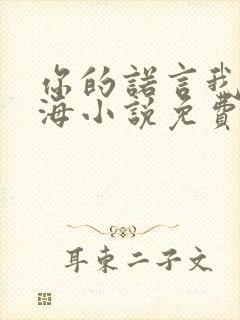 你的諾言我
海小說免費
耳東二子文